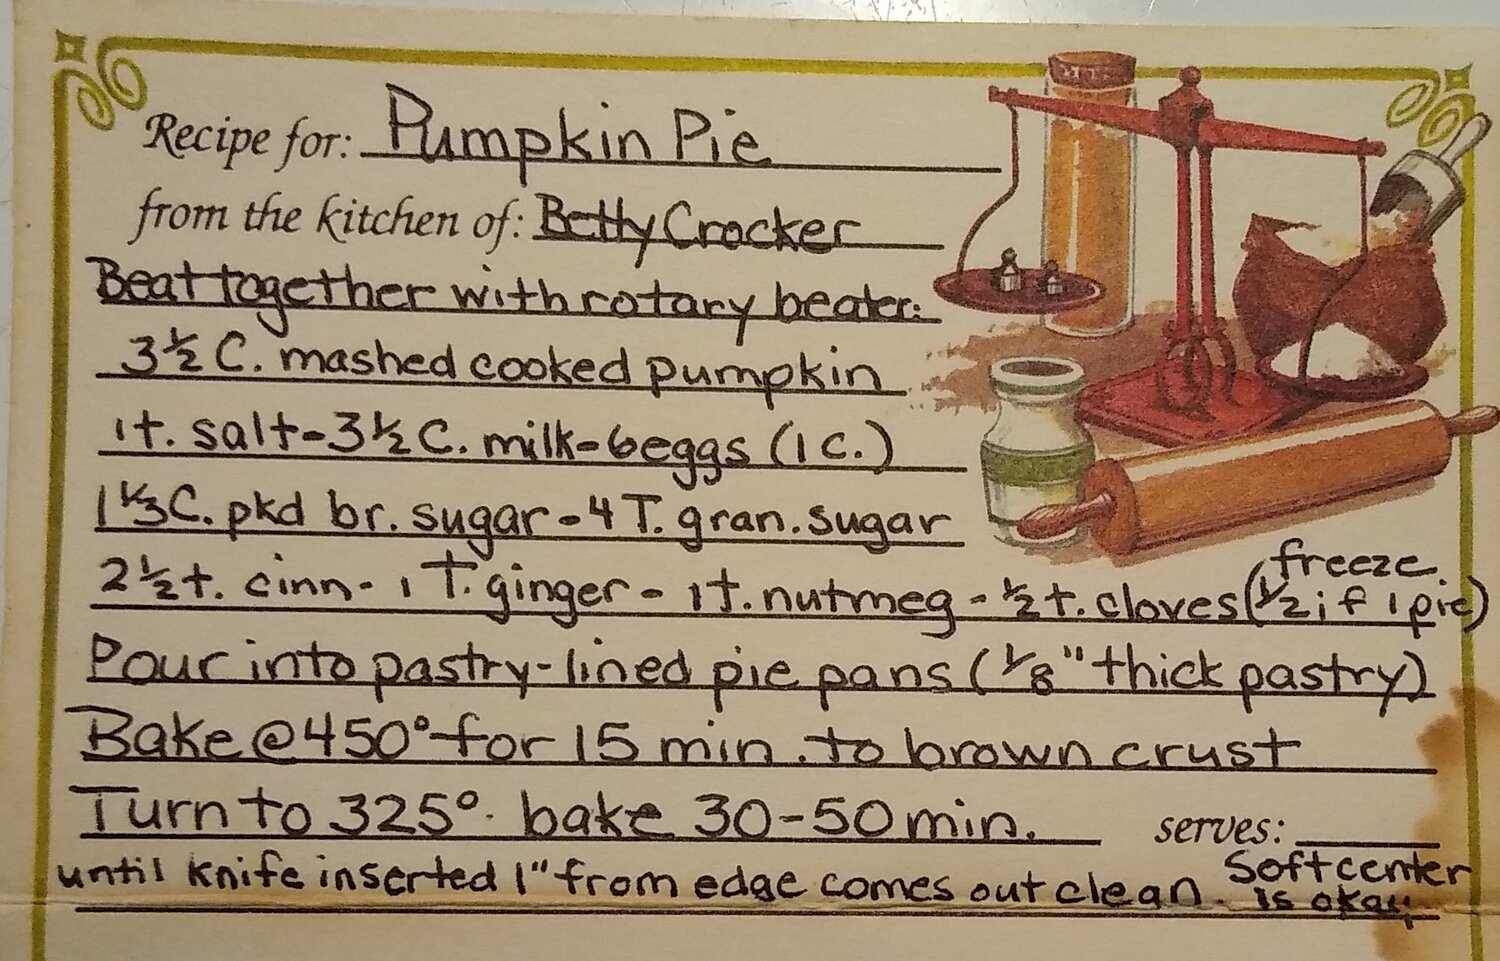 Recipe for: Pumpkin Pie
from the kitchen of: Betty Crocker
Beat together with rotary beater:
3½ C. mashed cooked pumpkin
1t. salt - 3½ C. milk - 6 eggs (1 C.)
1⅓ C. pkd br. sugar - 4 T. gran. sugar
2½ t. cinn - 1 T. ginger - 1t. nutmeg - ½ t. cloves (½ if 1 pie)
freeze
Pour into pastry-lined pie pans (⅛" thick pastry)
Bake @ 450° for 15 min. to brown crust
Turn to 325°. bake 30-50 min. serves:
until knife inserted 1" from edge comes out clean. Soft center
is okay